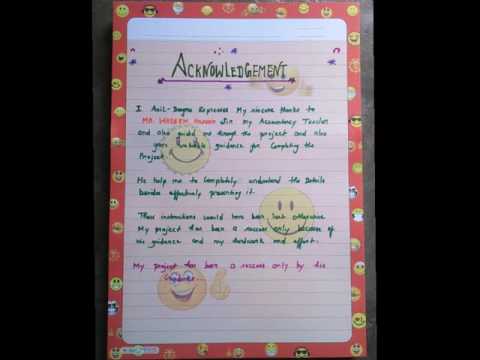 ACKNOWLEDGEMENT
I Anil- Dogra Expresses My sincere thanks to
MR. WASEEM Hussain Sir my Accountancy Teacher
and also guide me through the project and also
gives valuable guidance for Completing the
Project.
He help me to Completely understand the Details
besides effectively presenting it.
These instructions would have been lost otherwise
My project has been a success only because of
his guidance and my hardwork and effort.
My project has been a success only by his
Guidance